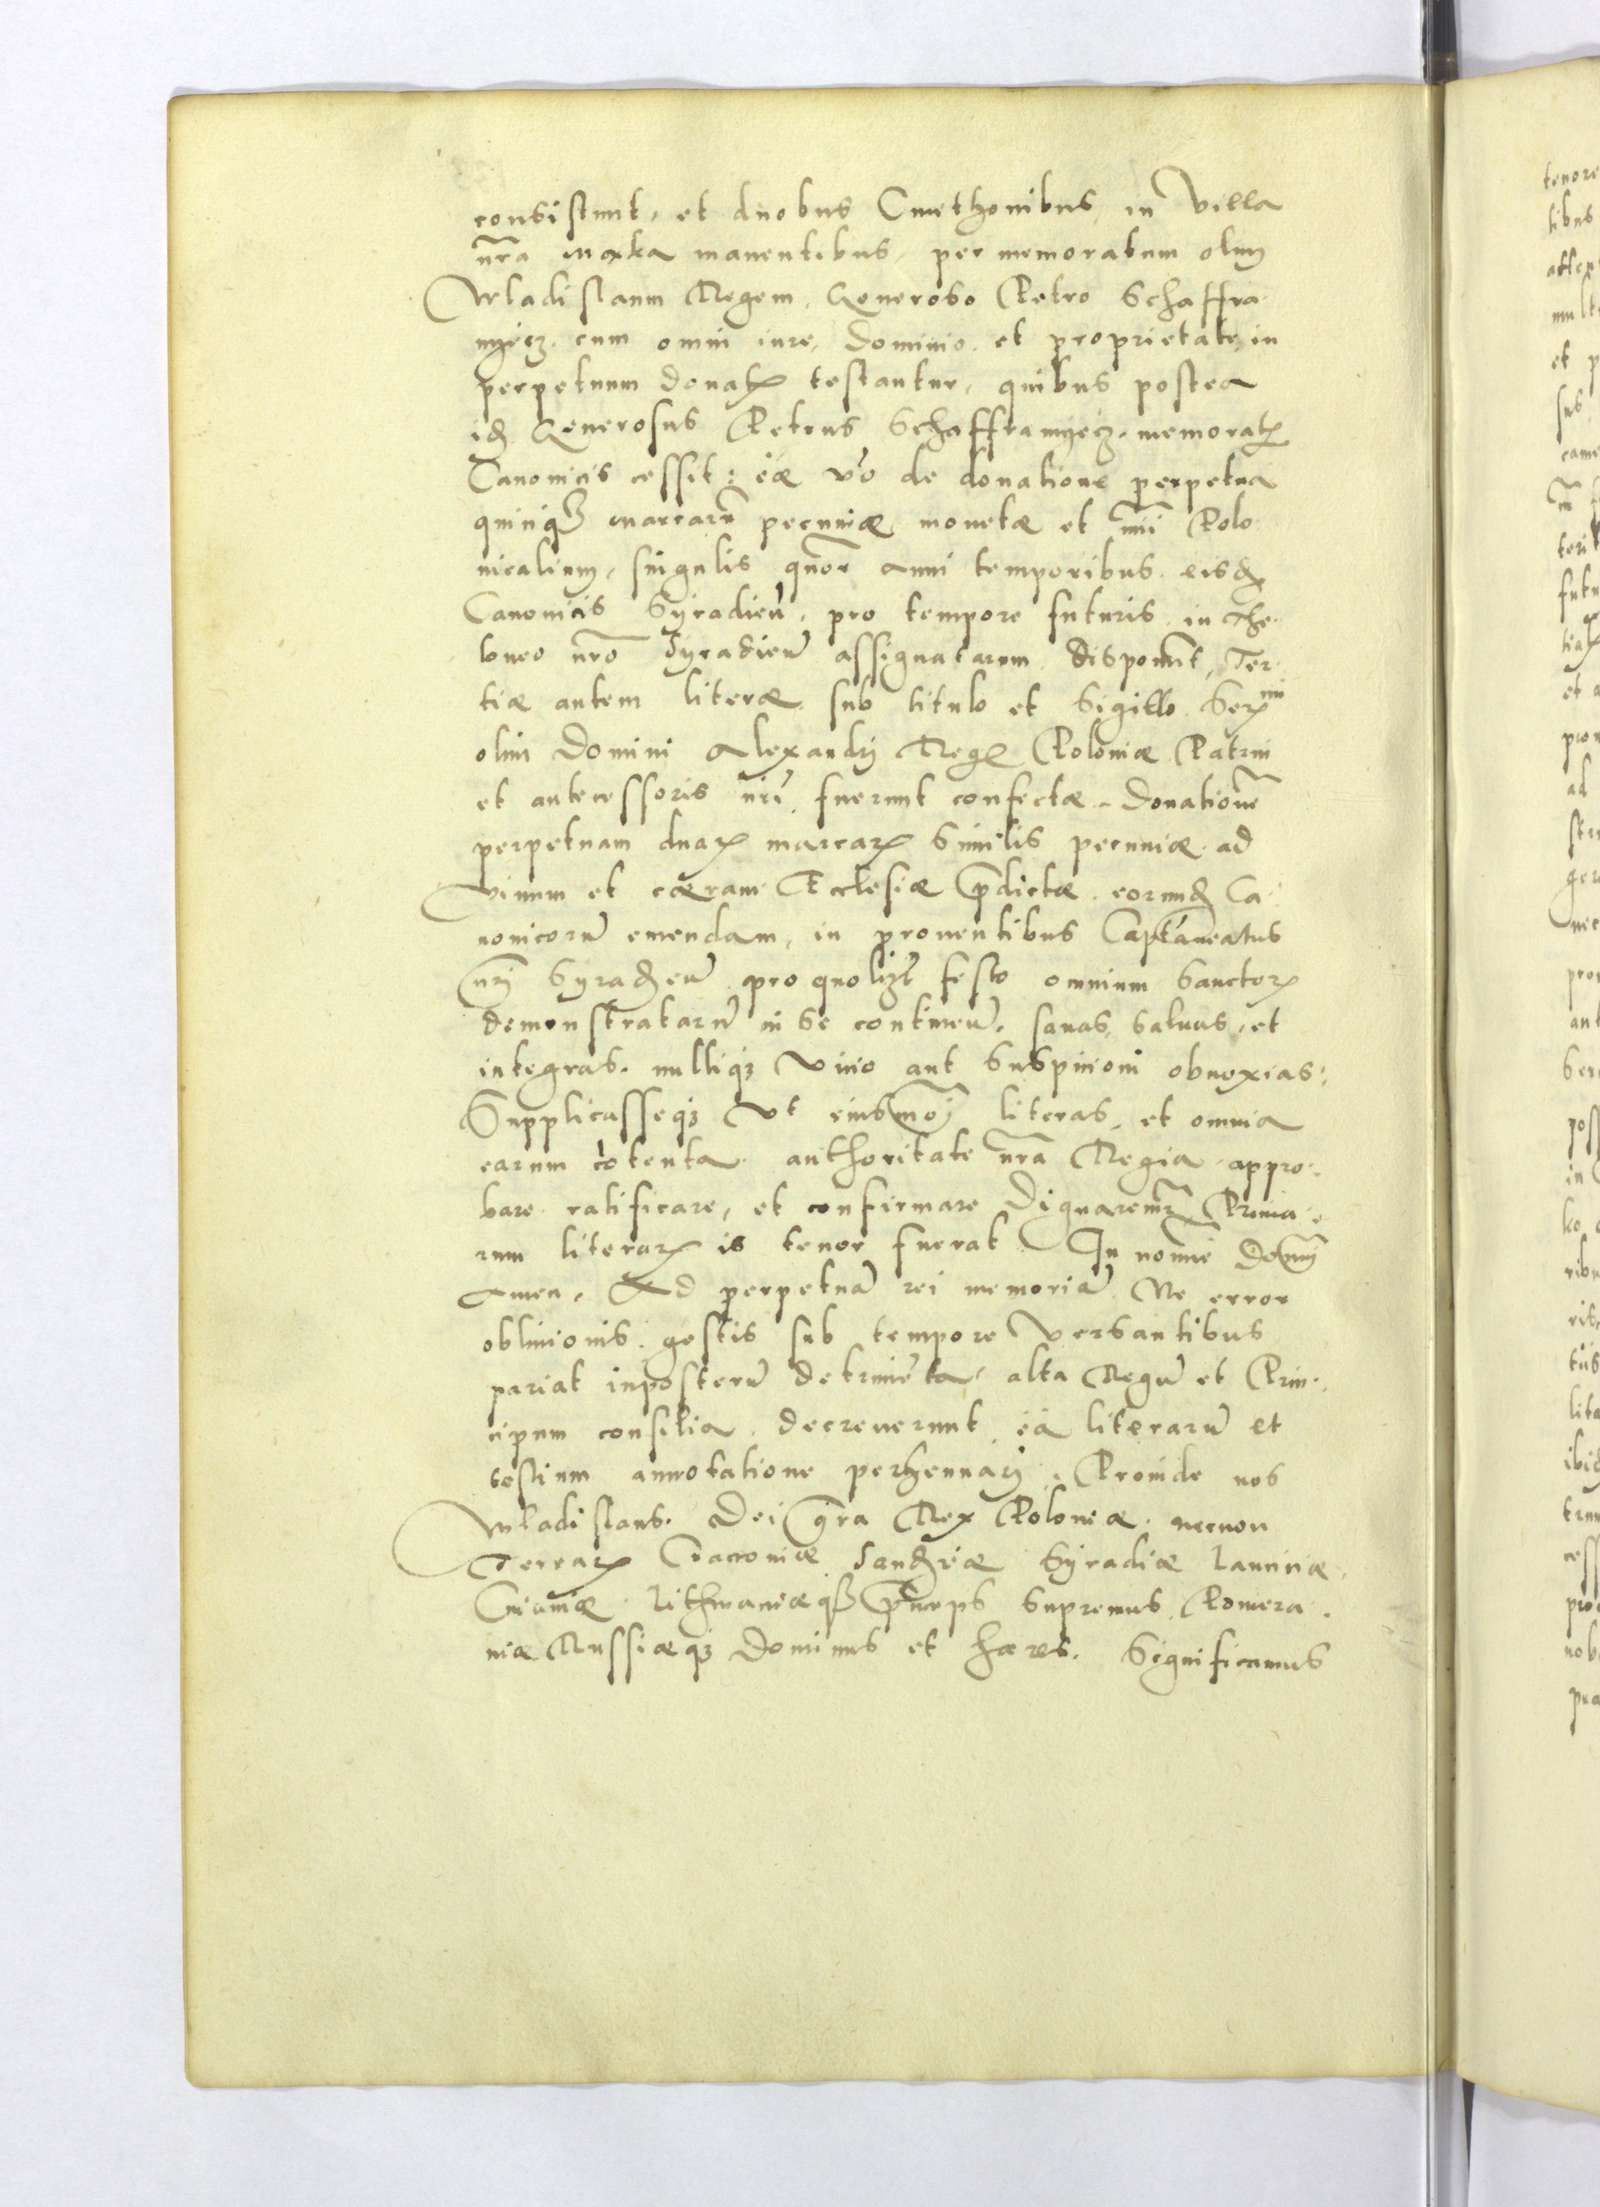 consistunt, et duobus Cmethonibus in Villa
nr̃a Moxka manentibus, per memoratum olim
Wladislaum Regem, Generoso Petro Schaffra
myecz, cum omni iure, dominio, et proprietate, in
perpetuum donatꝝ testantur, quibus postea
idē Generosus Petrus Schafframyecz memoratꝭ
Canonicis cessit: eæ vo de donatione perpetua
quinqꝫ marcarũ pecuniæ monetæ et nũi Polo
nicalium, singulis quor̃ anni temporibus eisdē
Canonicis Syradieñ, pro tempore futuris in the
loneo nr̃o Syradieñ assignatarum disponunt, Ter
tiæ autem literæ sub titulo et Sigillo Serᵐⁱ
olim Domini Alexandri Regꝭ Poloniæ Patrui
et antecessoris nr̃i fuerunt confectæ, donationẽ
perpetuam duaꝝ marcaꝝ similis pecuniæ ad
vinum et cæram Ecclesiæ p̃dictæ eorundē Ca
nonicorũ emendam, in prouentibus Captaneatus
nr̃i Syradieñ pro quolibet festo omnium Sanctoꝝ
demonstratarũ in se continẽn. sanas, saluas, et
integras, nulliqꝫ vitio aut suspicioni obnoxias:
Supplicasseqꝫ vt eiusmoi literas, et omnia
earum cõtenta authoritate nr̃a Regia appro
bare ratificare, et confirmare dignaremur, Prima
rum literaꝝ is tenor fuerat In nomine Domini
Amen, Ad perpetuã rei memoriã Ne error
obliuionis gestis sub tempore versantibus
pariat inposterũ detrimẽta, alta Regũ et Prin
cipum consilia decreuerunt ea literarũ et
testium annotatione perhennari, Proinde nos
Wladislaus Dei gr̃a Rex Poloniæ necnon
Terraꝝ Cracouiæ Sandꝭiæ Syradiæ Lanciciæ
Cuiauiæ Lithuaniæqꝫ princeps supremus Pomera
niæ Russiæqꝫ Dominus et hæres. Significamus